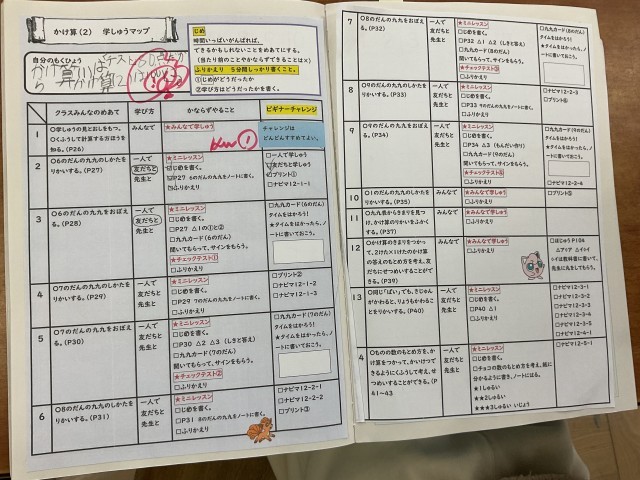 かけ算(2) 学しゅうマップ
自分のもくひょう
じめ
時間いっぱいがんばれば、
できるかもしれないことをめあてにする。
(当たり前のことやかならずできることは×)
ふりかえり 5分間しっかり書くこと。
①じめがどうだったか
②学び方はどうだったかを書く。
クラスみんなのめあて 学び方 かならずやること ビギナーチャレンジ
1
○学しゅうの見とおしをもつ。
○くふうして計算する方ほうを知る。(P26)
みんなで
★みんなで学しゅう
チャレンジは
どんどんすすめてよい。
2
○6のだんの九九のしかたをりかいする。(P27)
一人で
友だちと
先生と
★ミニレッスン
□じめを書く。
□P27 6のだんの九九をノートに書く。
□ふりかえり
□一人で学しゅう
□友だちと学しゅう
□プリント①
□ナビマ12-1-1
3
○6のだんの九九をおぼえる。(P28)
一人で
友だちと
先生と
★ミニレッスン
□じめを書く。
□P27 △1の①と②
□九九カード(6のだん)
聞いてもらって、サインをもらう。
★チェックテスト①
□ふりかえり
□九九カード(6のだん)
タイムをはかろう!
★タイムをはかったら、ノートに書いておこう。
4
○7のだんの九九のしかたをりかいする。(P29)
一人で
友だちと
先生と
★ミニレッスン
□じめを書く。
□P29 7のだんの九九をノートに書く。
□ふりかえり
□プリント②
□ナビマ12-1-2
□ナビマ12-1-3
5
○7のだんの九九をおぼえる。(P30)
一人で
友だちと
先生と
★ミニレッスン
□じめを書く。
□P30 △2 △3 (しきと答え)
□九九カード(7のだん)
聞いてもらって、サインをもらう。
★チェックテスト②
□ふりかえり
□九九カード(7のだん)
タイムをはかろう!
★タイムをはかったら、ノートに書いておこう。
6
○8のだんの九九のしかたをりかいする。(P31)
一人で
友だちと
先生と
★ミニレッスン
□じめを書く。
□P31 8のだんの九九をノートに書く。
□ふりかえり
□ナビマ12-2-1
□ナビマ12-2-2
□プリント③
7
○8のだんの九九をおぼえる。(P32)
一人で
友だちと
先生と
★ミニレッスン
□じめを書く。
□P32 △1 △2 (しきと答え)
□九九カード(8のだん)
聞いてもらって、サインをもらう。
★チェックテスト③
□ふりかえり
□九九カード(8のだん)
タイムをはかろう!
★タイムをはかったら、ノートに書いておこう。
8
○9のだんの九九のしかたをりかいする。(P33)
一人で
友だちと
先生と
★ミニレッスン
□じめを書く。
□P33 9のだんの九九をノートに書く。
□ふりかえり
□ナビマ12-2-3
□プリント④
9
○9のだんの九九をおぼえる。(P34)
一人で
友だちと
先生と
★ミニレッスン
□じめを書く。
□P34 △3 (もんだい作り)
□九九カード(9のだん)
聞いてもらって、サインをもらう。
□ふりかえり
□九九カード(9のだん)
タイムをはかろう!
★タイムをはかったら、ノートに書いておこう。
□ナビマ12-2-4
□プリント⑤
10
○1のだんの九九のしかたをりかいする。(P35)
みんなで
★みんなで学しゅう
□ふりかえり
11
○九九表からきまりを見つけ、かけ算のりかいをふかくする。(P37)
みんなで
★みんなで学しゅう
□ふりかえり
12
○かけ算のきまりをつかって、2けた×1けたのかけ算の答えのもとめ方を考え、友だちにせつめいすることができる。(P39)
みんなで
★みんなで学しゅう
□ふりかえり
□ほじゅうP104
13
○同じ「ばい」でも、きじゅんがかわると、りょうもかわることをりかいする。(P40)
一人で
友だちと
先生と
★ミニレッスン
□じめを書く。
□P40 △1
□ふりかえり
□ナビマ12-3-1
□ナビマ12-3-2
□ナビマ12-3-3
□ナビマ12-3-4
□ナビマ12-3-5
□ナビマ12-4-1
4
○ものの数のもとめ方を、かけ算をつかって、かんけつにできるようにくふうして考え、せつめいすることができる。(P41~43
一人で
友だちと
先生と
★ミニレッスン
□じめを書く。
□チョコの数のもとめ方を考え、紙に分かるように書き、ノートにはる。
★1しゅるい
★★2しゅるい
★★★3しゅるい いじょう
□ナビマ12-5-1